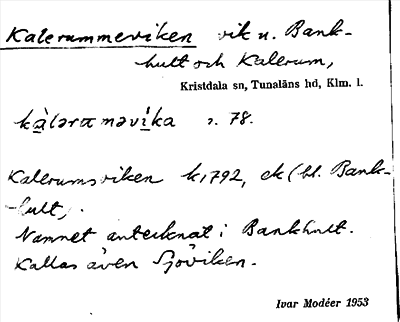 Kalerummeviken vik u. Bank-
hult och Kalerum,
Kristdala sn, Tunaläns hd, Klm. l.
kàlərɑməvíka 2. 78.
Kalerumsviken k, 1792, ek (bl. Bank-
hult).
Namnet antecknat i Bankhult.
Kallas även Sjöviken.
Ivar Modéer 1953